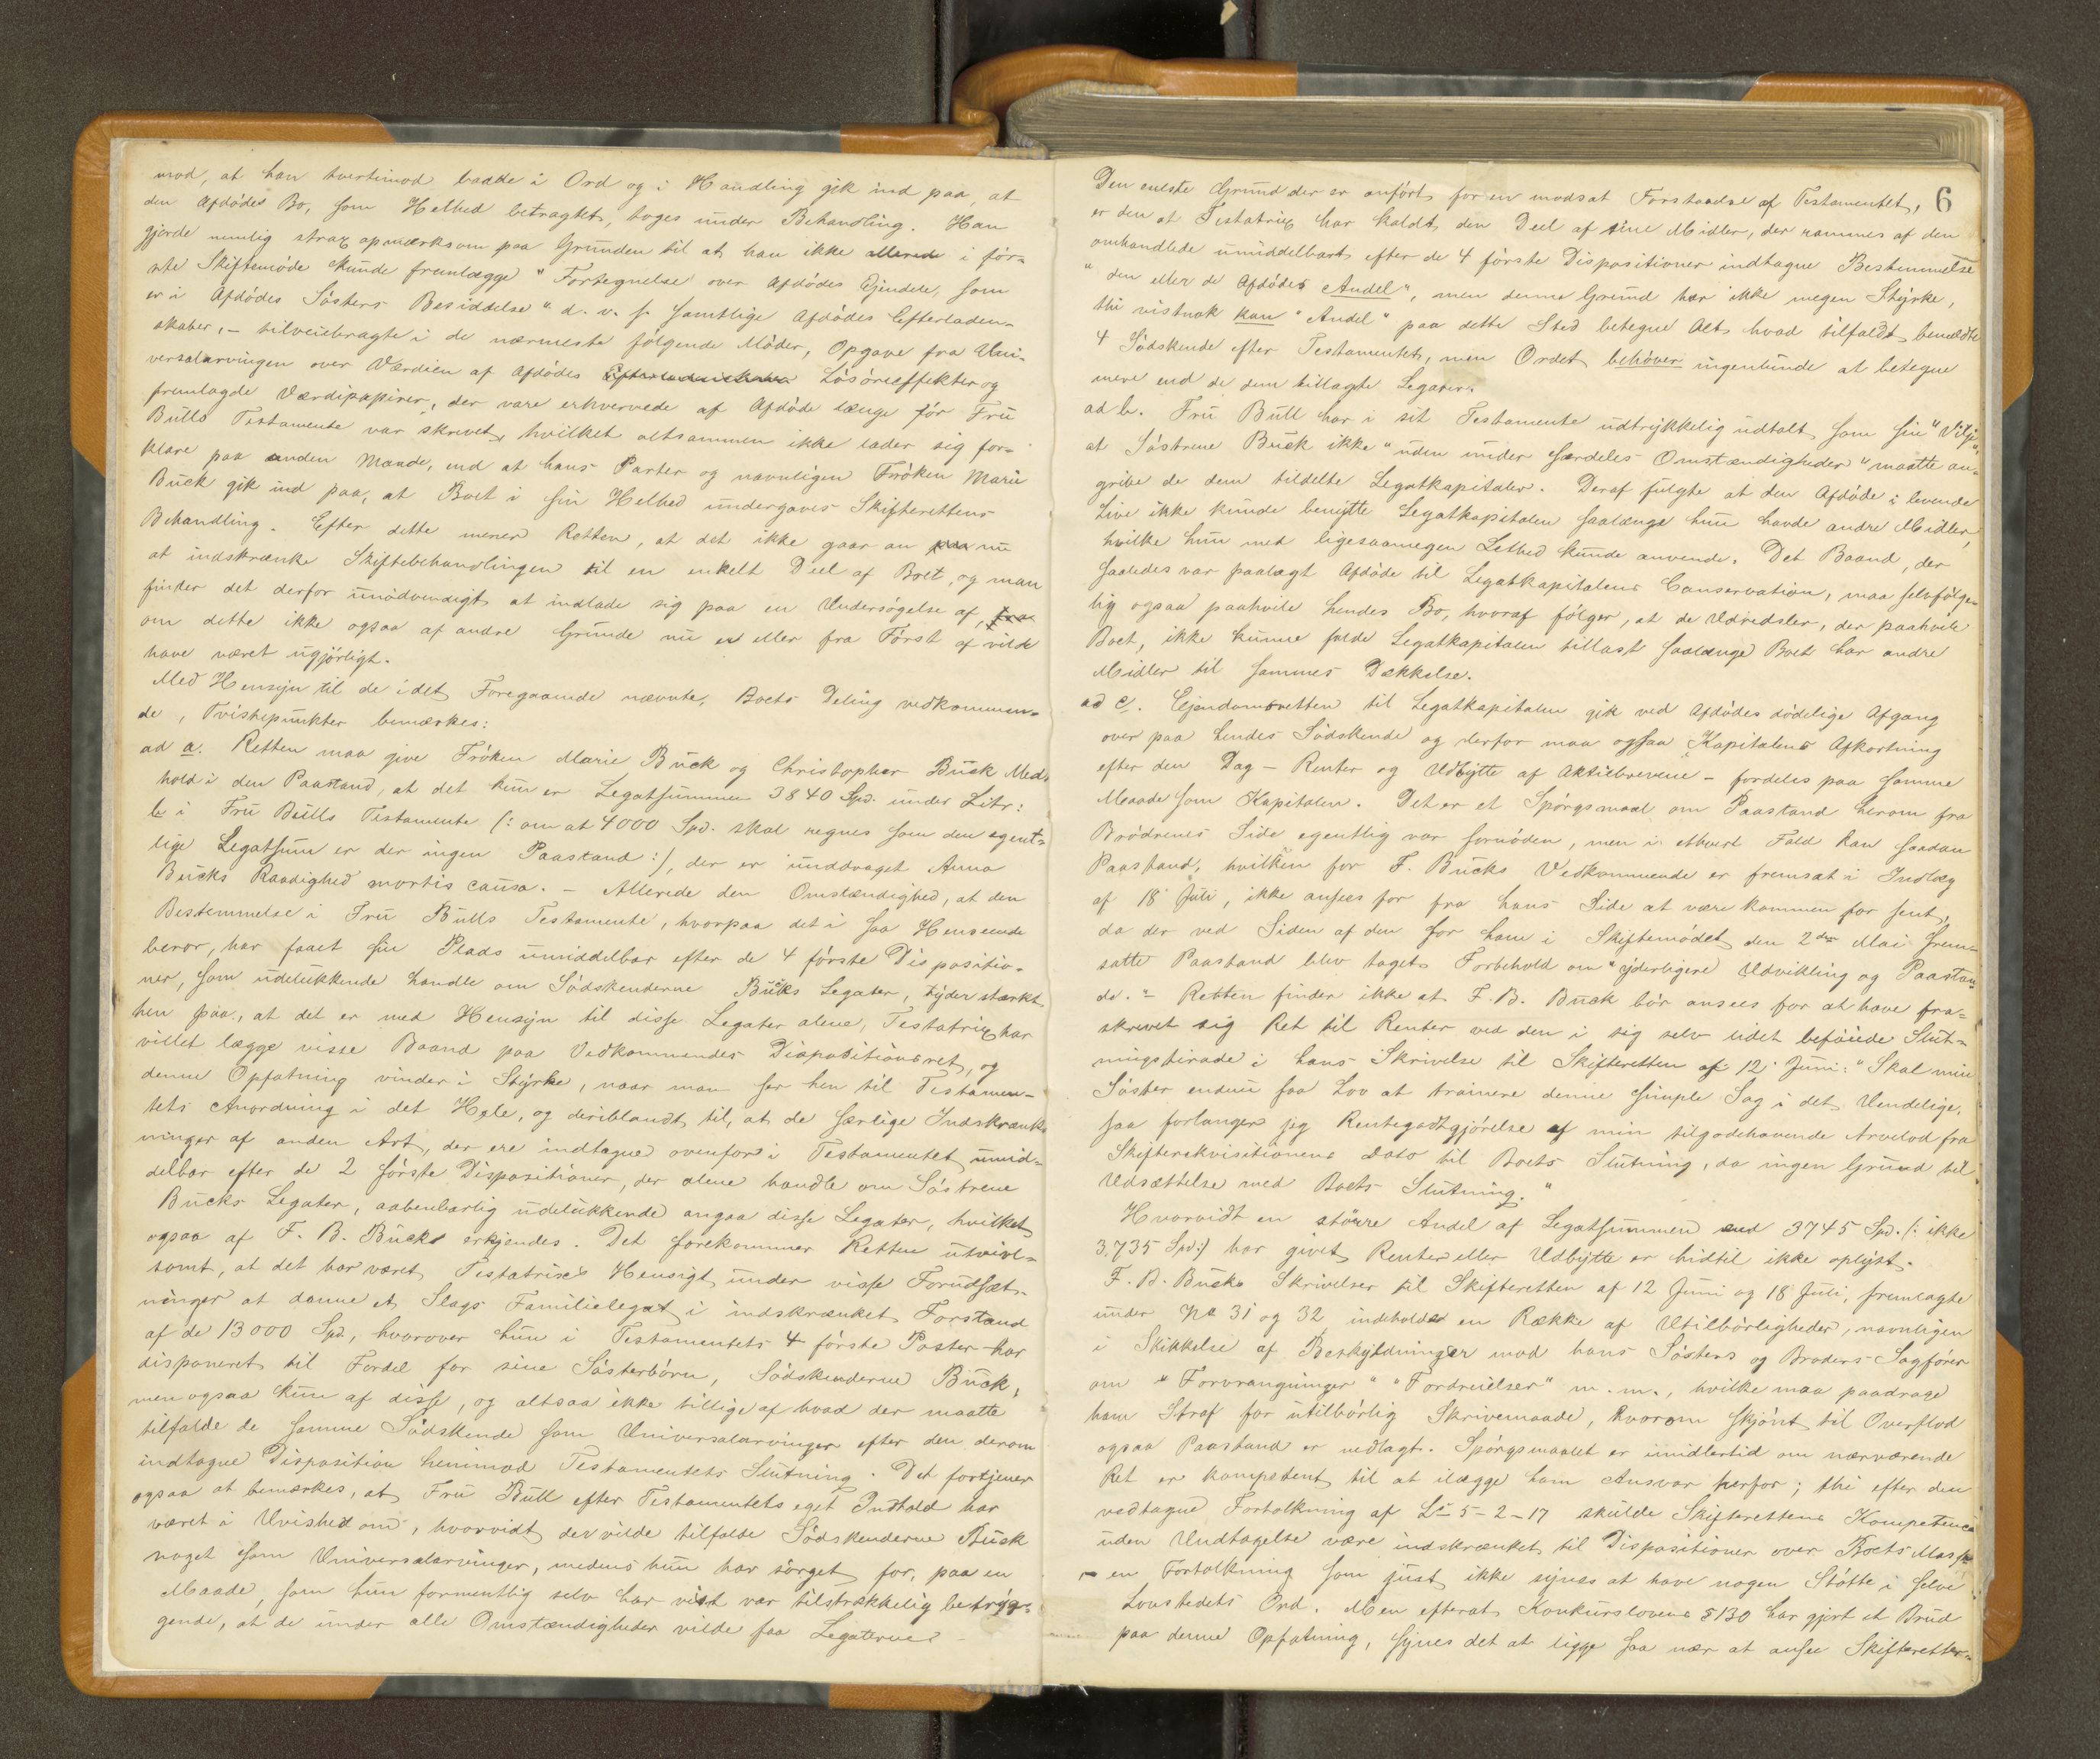 mod, at han tvertimod baade i Ord og i Handling gik ind paa, at
den Afdødes Bo, som Helhed betragtet, toges under Behandling. Han
gjorde nemlig strax opmærksom paa Grunden til at han ikke allerede i før-
ste Skiftemøde kunde fremlægge "Fortegnelse over Afdødes Ejendele, som
er i Afdødes Søsters Besiddelse" d. v. s. samtlige Afdødes Efterladen-
skaber, – tilveiebragte i de nærmeste følgende Møder, Opgave fra Uni-
versalarvingen over Værdien af Afdødes Efterladenskaber Løsøreeffekter og
fremlagde Værdipapirer, der vare erhvervede af Afdøde længe før Fru
Bulls Testamente var skrevet, hvilket altsammen ikke lader sig for-
klare paa anden Maade, end at hans Parter og navnligen Frøken Marie
Buck gik ind paa, at Boet i sin Helhed undergaves Skifterettens
Behandling. Efter dette mener Retten, at det ikke gaar an paa nu
at indskrænke Skiftebehandlingen til en enkelt Deel af Boet, og man
finder det derfor unødvendigt at indlade sig paa en Undersøgelse af, fra
om dette ikke ogsaa af andre Grunde nu er eller fra Først af vilde
have været ugjørligt.
Med Hensyn til de i det Foregaaende nævnte, Boets Deling vedkommen-
de, Tvistepunkter bemærkes:
ad a. Retten maa give Frøken Marie Buck og Christopher Buck Med-
hold i den Paastand, at det kun er Legatsummen 3840 Spd. under Litr:
b i Fru Bulls Testamente (: om at 4000 Spd. skal regnes som den egent-
lige Legatsum er der ingen Paastand :), der er unddraget Anna
Bucks Raadighed mortis causa. – Allerede den Omstændighed, at den
Bestemmelse i Fru Bulls Testamente, hvorpaa det i saa Henseende
beror, har faaet sin Plads umiddelbar efter de 4 første Dispositio-
ner, som udelukkende handle om Sødskenderne Bucks Legater, tyder stærkt
hen paa, at det er med Hensyn til disse Legater alene, Testatrix har
villet lægge visse Baand paa Vedkommendes Dispositionsret, og
denne Opfatning vinder i Styrke, naar man ser hen til Testamen-
tets Anordning i det Hele, og deriblandt til, at de særlige Indskrænk-
ninger af anden Art, der ere indtagne ovenfor i Testamentet umid-
delbar efter de 2 første Dispositioner, der alene handle om Søstrene
Bucks Legater, aabenbarlig udelukkende angaa disse Legater, hvilket
ogsaa af F. B. Buck erkjendes. Det forekommer Retten utvivl-
somt, at det har været Testatrix's Hensigt under visse Forudsæt-
ninger at danne et Slags Familielegat i indskrænket Forstand
af de 13000 Spd, hvorover hun i Testamentets 4 første Poster har
disponeret til Fordel for sine Søsterbørn, Sødskenderne Buck,
men ogsaa kun af disse, og altsaa ikke tillige af hvad der maatte
tilfalde de samme Sødskende som Universalarvinger efter den derom
indtagne Disposition henimod Testamentets Slutning. Det fortjener
ogsaa at bemærkes, at Fru Bull efter Testamentets eget Indhold har
været i Uvished om, hvorvidt der vilde tilfalde Sødskenderne Buck
noget som Universalarvinger, medens hun har sørget for, paa en
Maade, som hun formentlig selv har vist var tilstrækkelig betryg-
gende, at de under alle Omstændigheder vilde faa Legaterne.
6
Den eneste Grund der er anført for en modsat Forstaaelse af Testamentet,
er den at Testatrix har kaldt den Deel af sine Midler, der rammes af den
omhandlede umiddelbart efter de 4 første Dispositioner indtagne Bestemmelse
"den eller de Afdødes Andel", men denne Grund har ikke megen Styrke,
thi vistnok kan "Andel" paa dette Sted betegne Alt hvad tilfaldt bemeldte
4 Sødskende efter Testamentet, men Ordet behøver ingenlunde at betegne
mere end de dem tillagte Legater.
ad b. Fru Bull har i sit Testamente udtrykkelig udtalt som sin "Vilje",
at Søstrene Buck ikke "uden under særdeles Omstændigheder" maatte an-
gribe de dem tildelte Legatkapitaler. Deraf fulgte at den Afdøde i levende
Live ikke kunde benytte Legatkapitalen saalænge hun havde andre Midler,
hvilke hun med ligesaamegen Lethed kunde anvende. Det Baand, der
saaledes var paalagt Afdøde til Legatkapitalens Conservation, maa selvfølge-
lig ogsaa paahvile hendes Bo, hvoraf følger, at de Udredsler, der paahvile
Boet, ikke kunne falde Legatkapitalen tillast saalænge Boet har andre
Midler til sammes Dækkelse.
ad c. Ejendomsretten til Legatkapitalen gik ved Afdødes dødelige Afgang
over paa hendes Sødskende og derfor maa ogsaa Kapitalens Afkastning
efter den Dag – Renter og Udbytte af Aktiebrevene – fordeles paa samme
Maade som Kapitalen. Det er et Spørgsmaal om Paastand herom fra
Brødrenes Side egentlig var fornøden, men i ethvert Fald kan saadan
Paastand, hvilken for F. Bucks Vedkommende er fremsat i Indlæg
af 18 Juli, ikke ansees for fra hans Side at være kommen for sent,
da der ved Siden af den for ham i Skiftemødet den 2den Mai frem-
satte Paastand blev taget Forbehold om "yderligere Udvikling og Paastan-
de." – Retten finder ikke at F. B. Buck bør ansees for at have fra-
skrevet sig Ret til Renter ved den i sig selv lidet beføiede Slut-
ningstirade i hans Skrivelse til Skifteretten af 12 Juni: "Skal min
Søster endnu faa Lov at trainere denne simple Sag i det Uendelige,
saa forlanger jeg Rentegodtgjørelse af min tilgodehavende Arvelod fra
Skifterekvisitionens Dato til Boets Slutning, da ingen Grund til
Udsættelse med Boets Slutning."
Hvorvidt en større Andel af Legatsummen end 3745 Spd. (: ikke
3,735 Spd :) har givet Renter eller Udbytte er hidtil ikke oplyst.
F. B. Bucks Skrivelser til Skifteretten af 12 Juni og 18 Juli, fremlagte
under No 31 og 32 indeholder en Række af Utilbørligheder, navnligen
i Skikkelse af Beskyldninger mod hans Søsters og Broders Sagfører
om "Forvrangninger" "Fordreielser" m. m., hvilke maa paadrage
ham Straf for utilbørlig Skrivemaade, hvorom skjønt til Overflod
ogsaa Paastand er nedlagt. Spørgsmaalet er imidlertid om nærværende
Ret er kompetent til at ilægge ham Ansvar herfor; thi efter den
vedtagne Fortolkning af L. 5-2-17 skulde Skifterettens Kompetence
uden Undtagelse være indskrænket til Dispositioner over Boets Masse
– en Fortolkning som just ikke synes at have nogen Støtte i selve
Lovstedets Ord. Men efterat Konkurslovens § 130 har gjort et Brud
paa denne Opfatning, synes det at ligge saa nær at ansee Skifteretter-